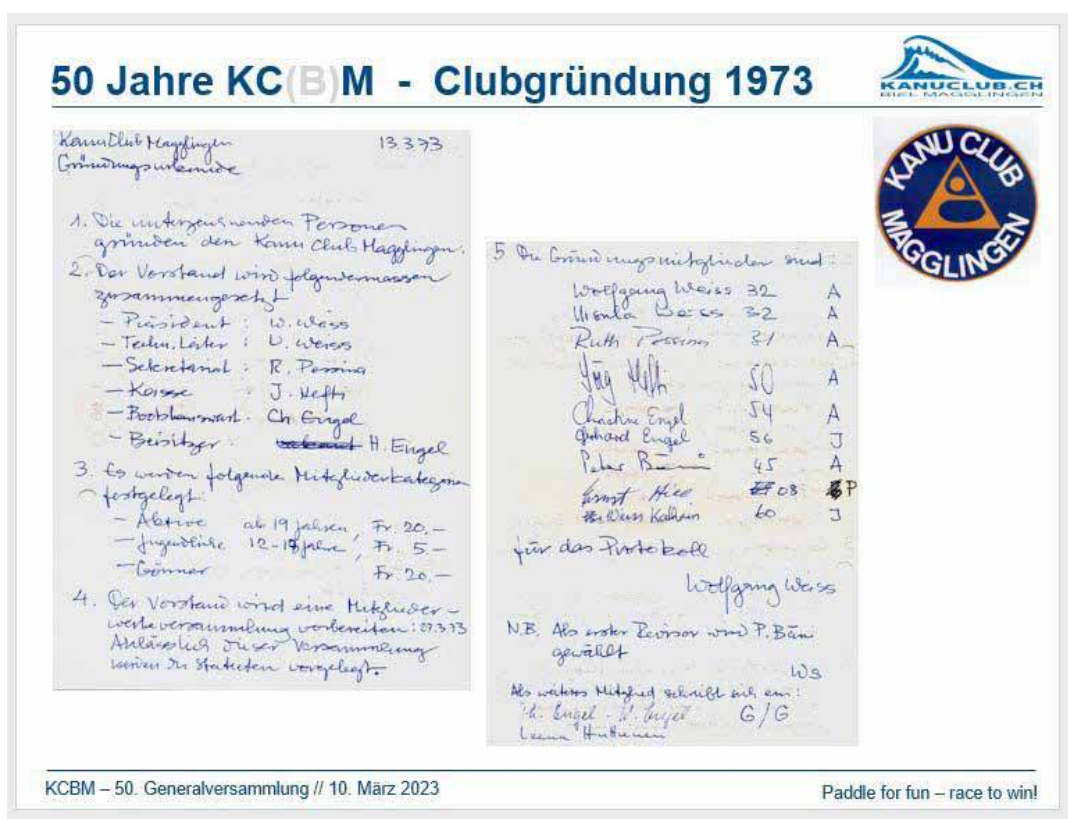 50 Jahre KC(B)M - Clubgründung 1973
KANUCLUB.CH
BIEL MAGGLINGEN
KANU CLUB
MAGGLINGEN
Kanu Club Magglingen 13.3.73
Gründungsurkunde
1. Die unterzeichnenden Personen
gründen den Kanu Club Magglingen.
2. Der Vorstand wird folgendermassen
zusammengesetzt
- Präsident : W. Weiss
- Techn. Leiter : U. Weiss
- Sekretariat : R. Pessina
- Kasse : J. Hefti
- Bootshauswart. Ch. Engel
- Beisitzer : H. Engel
3. Es werden folgende Mitgliederkategorien
festgelegt:
- Aktive ab 19 Jahren, Fr. 20.—
- Jugendliche 12-18 Jahre, Fr. 5.—
- Gönner Fr. 20.—
4. Der Vorstand wird eine Mitglieder-
werbeversammlung vorbereiten: 27.3.73
Anlässlich dieser Versammlung
werden die Statuten vorgelegt.
5. Die Gründungsmitglieder sind:
Wolfgang Weiss 32 A
Ursula Weiss 32 A
Ruth Pessina 31 A
Jürg Hefti 50 A
Christine Engel 54 A
Gerhard Engel 56 J
Peter Bäni 45 A
Ernst 08 P
Weiss Kathrin 60 J
für das Protokoll
Wolfgang Weiss
N.B. Als erster Revisor wird P. Bäni
gewählt
Ws
Als weiteres Mitglied schreibt sich ein:
H. Engel - W. Engel G/G
Leena Huttunen
KCBM – 50. Generalversammlung // 10. März 2023
Paddle for fun – race to win!